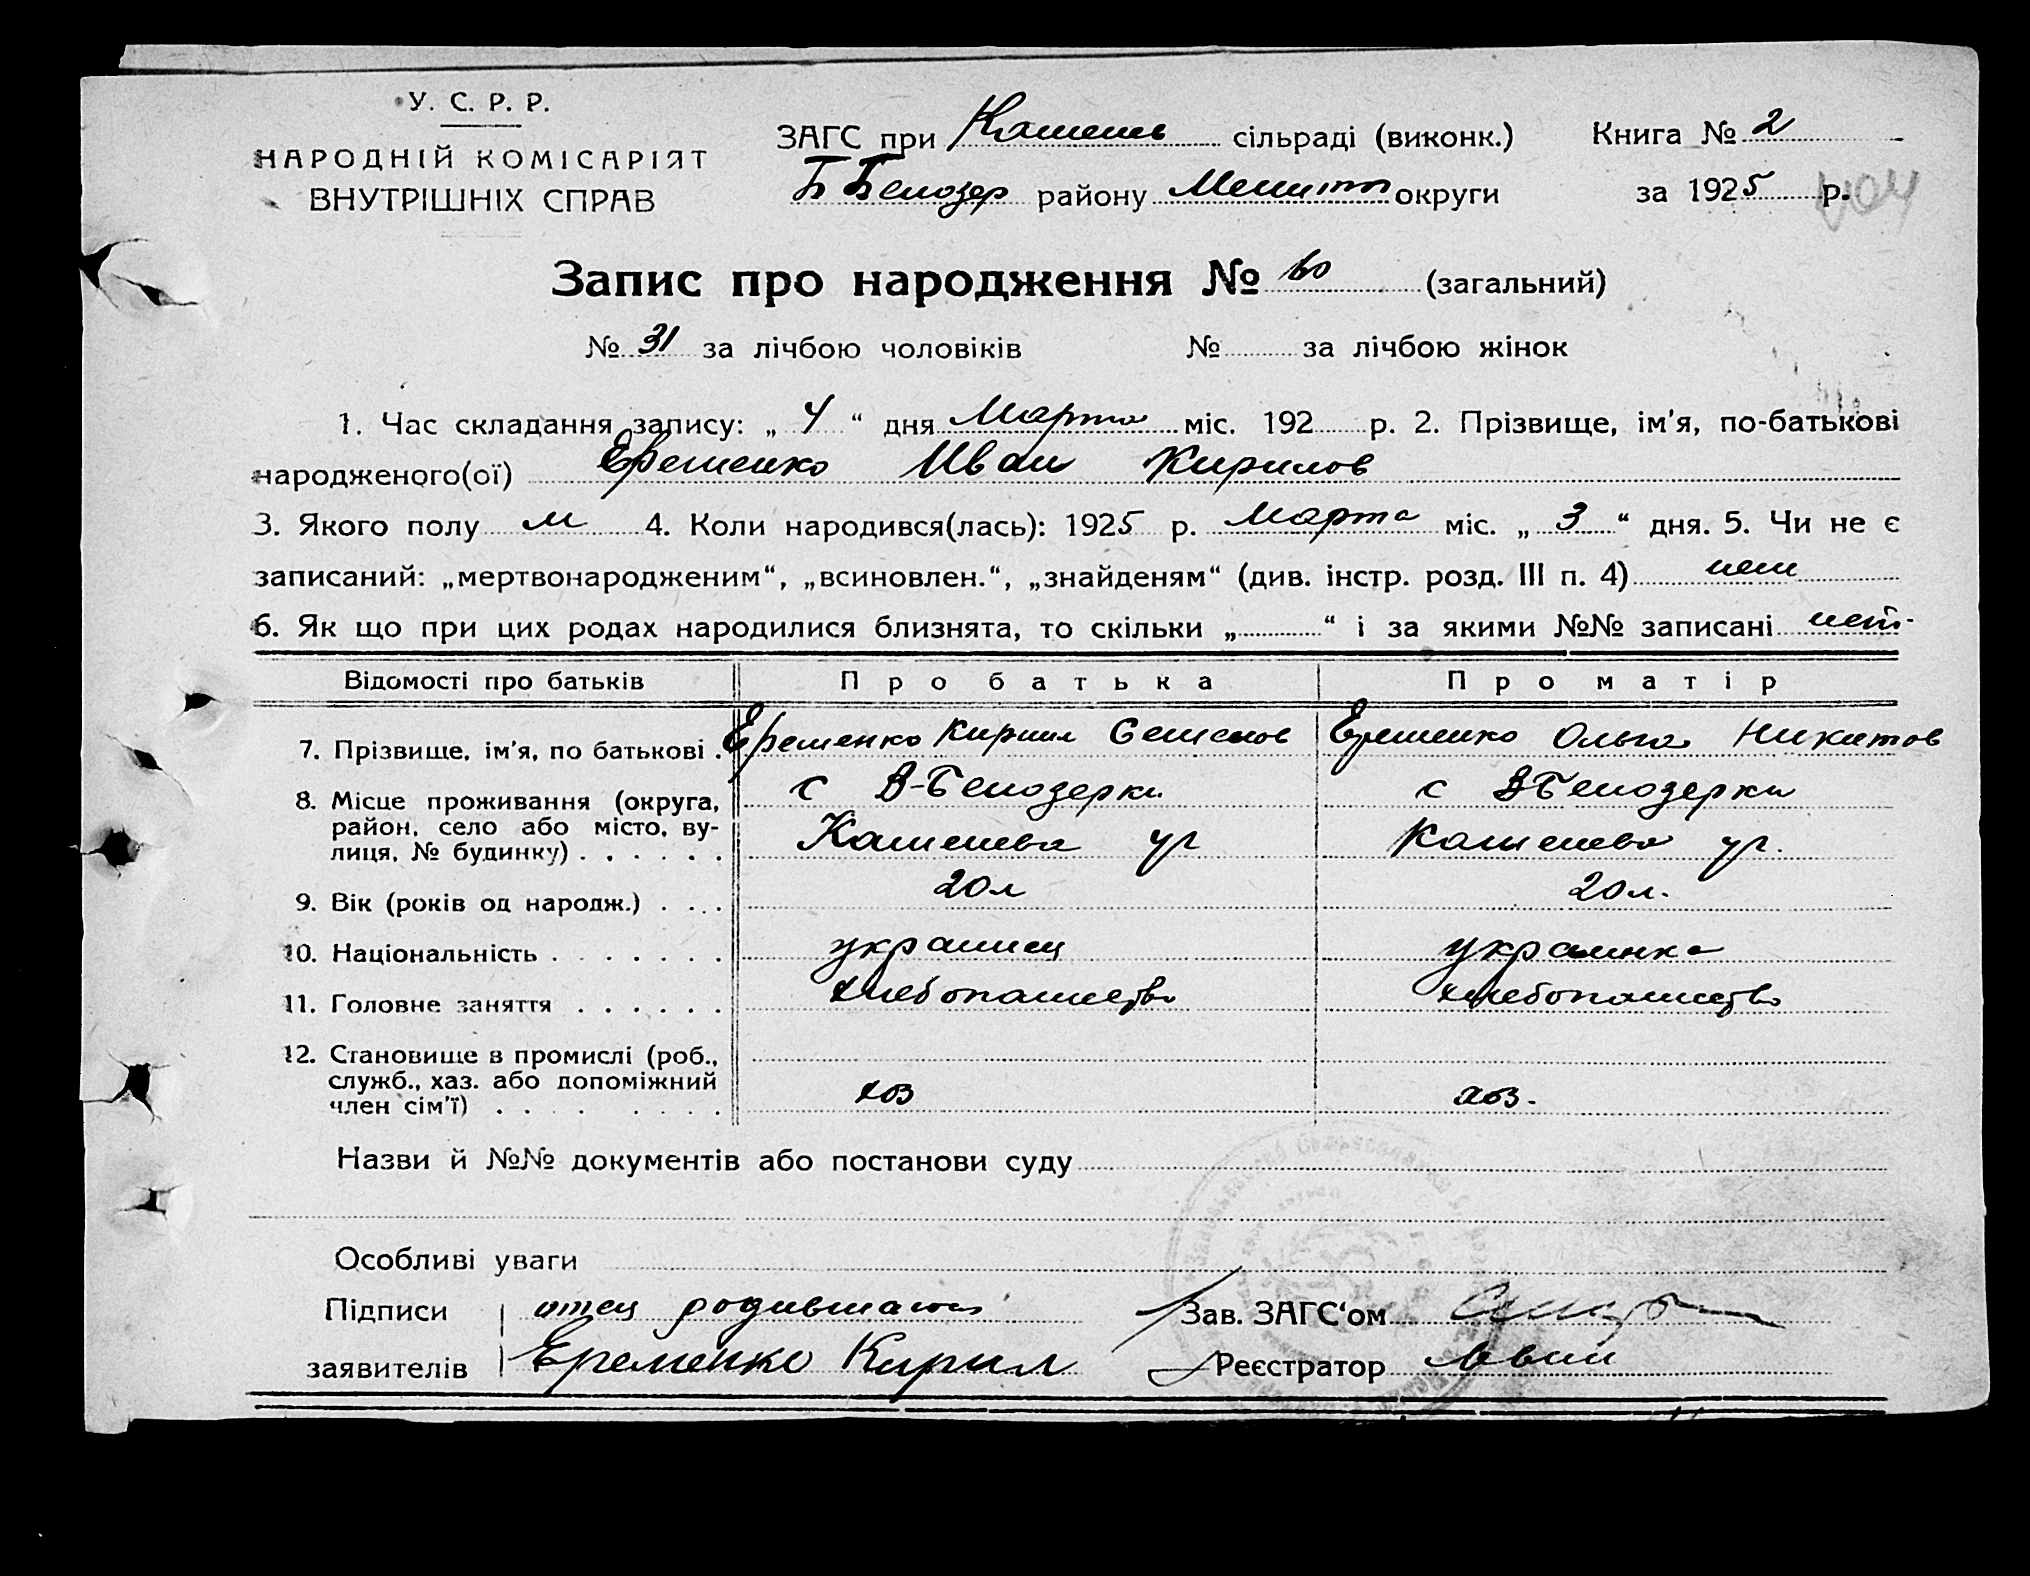 У. С. Р. Р.
НАРОДНІЙ КОМІСАРІЯТ
ВНУТРІШНІХ СПРАВ
ЗАГС при сільраді (виконк.) Книга № 2
Б Белозер району Мелит округи за 1925 р.
Запис про народження № 60 (загальний)
№ 31 за лічбою чоловіків № за лічбою жінок
1. Час складання запису: „ 4 “ дня Марта міс. 192 р. 2. Прізвище, ім'я, по-батькові
народженого(ої) Еременко Иван Кирилов
3. Якого полу м 4. Коли народився(лась): 1925 р. Марта міс. „ 3 “ дня. 5. Чи не є
записаний: „мертвонародженим“, „всиновлен.“, „знайденям“ (див. інстр. розд. III п. 4) нет
6. Як що при цих родах народилися близнята, то скільки „ “ і за якими №№ записані нет.
Відомості про батьків Про батька Про матір
7. Прізвище, ім'я, по батькові . Еременко Кирил Семенов Еременко Ольга Никитов
8. Місце проживання (округа, с В-Белозерки с ВБелозерки
район, село або місто, ву-
лиця, № будинку) . . . . . . ур ур.
9. Вік (років од народж.) . . . 20л 20л.
10. Національність . . . . . . . украинец украинка
11. Головне заняття . . . . . . хлебопашество хлебопашество
12. Становище в промислі (роб.,
служб., хаз. або допоміжний хоз хоз.
член сім'ї) . . . . . . . .
Назви й №№ документів або постанови суду
Особливі уваги
Підписи отец Зав. ЗАГС'ом
заявителів Еременко Кирил Реєстратор